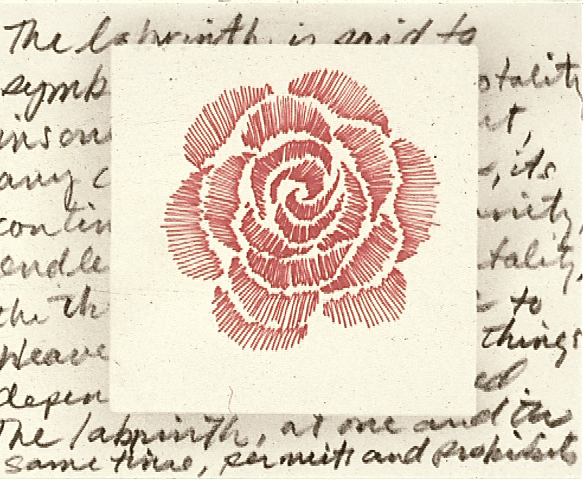 The labyrinth is said to
symb tality
inson t,
any c , its
contin
endle tality
the th to
Weave things
depen ed
The labyrinth, at one and the
same time, permits and prohibits